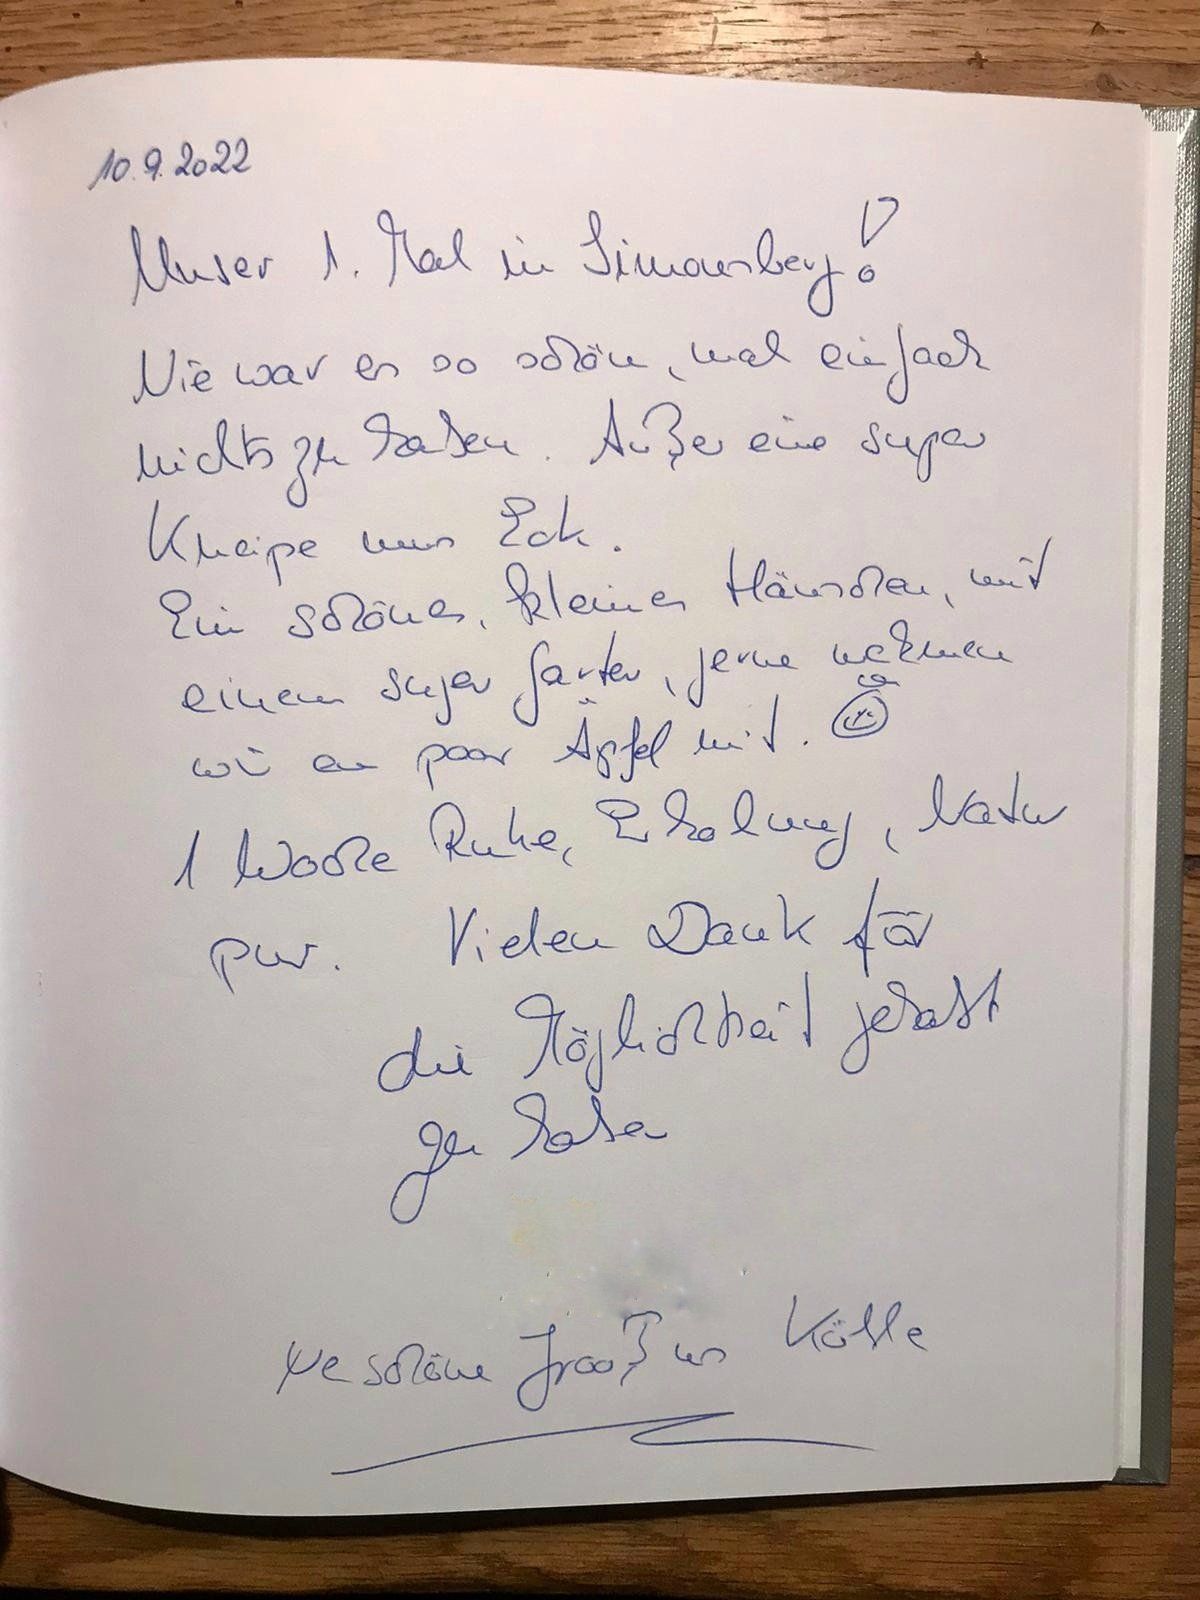 10.9.2022
Unser 1. Mal in Simonsberg!
Nie war es so schön, mal einfach
nichts zu haben. Außer eine super
Kneipe ums Eck.
Ein schönes, kleines Häuschen, mit
einem super Garten, gerne nehmen
wir en paar Äpfel mit.
1 Woche Ruhe, Erholung, Natur
pur. Vielen Dank für
die Möglichkeit gehabt
zu haben
Ne schöne Jrooß us Kölle